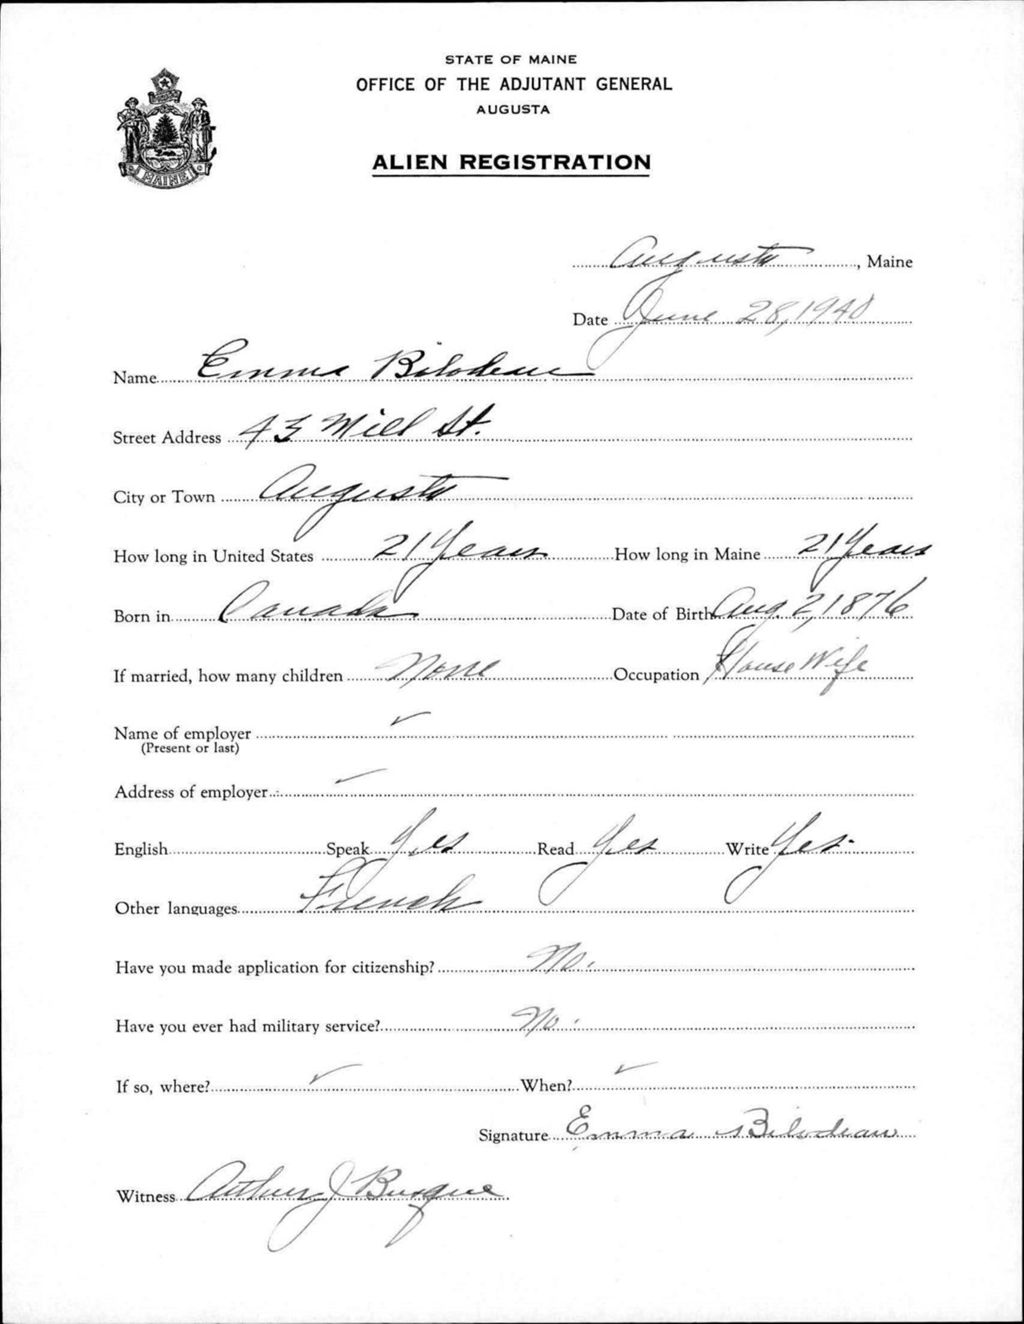 STATE OF MAINE
OFFICE OF THE ADJUTANT GENERAL
AUGUSTA
ALIEN REGISTRATION
MAINE
Augusta, Maine
Date June 28, 1940
Name Emma Bilodeau
Street Address 43 Mill St.
City or Town Augusta
How long in United States 21 Years How long in Maine 21 Years
Born in Canada Date of Birth Aug. 2, 1876
If married, how many children None Occupation House Wife
Name of employer
(Present or last)
Address of employer
English Speak Yes Read Yes Write Yes
Other languages French
Have you made application for citizenship? No.
Have you ever had military service? No.
If so, where? When?
Signature Emma Bilodeau
Witness Arthur J Busque